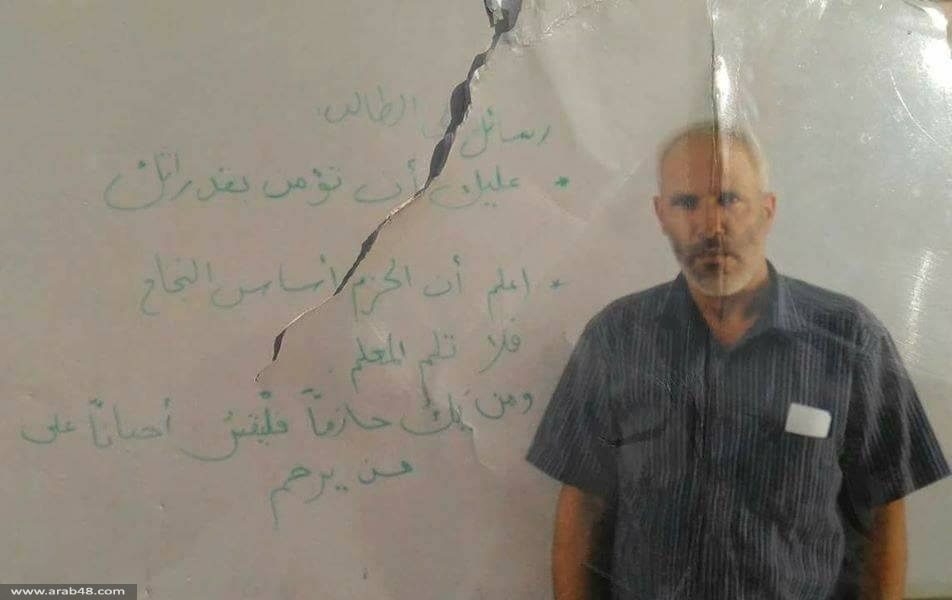 رسائل إلى الطالب:
* عليك أن تؤمن بقدراتك
* اعلم أن الحزم أساس النجاح
فلا تلم المعلم.
ومن يك حازماً فليقسُ أحياناً على
من يرحم
www.arab48.com